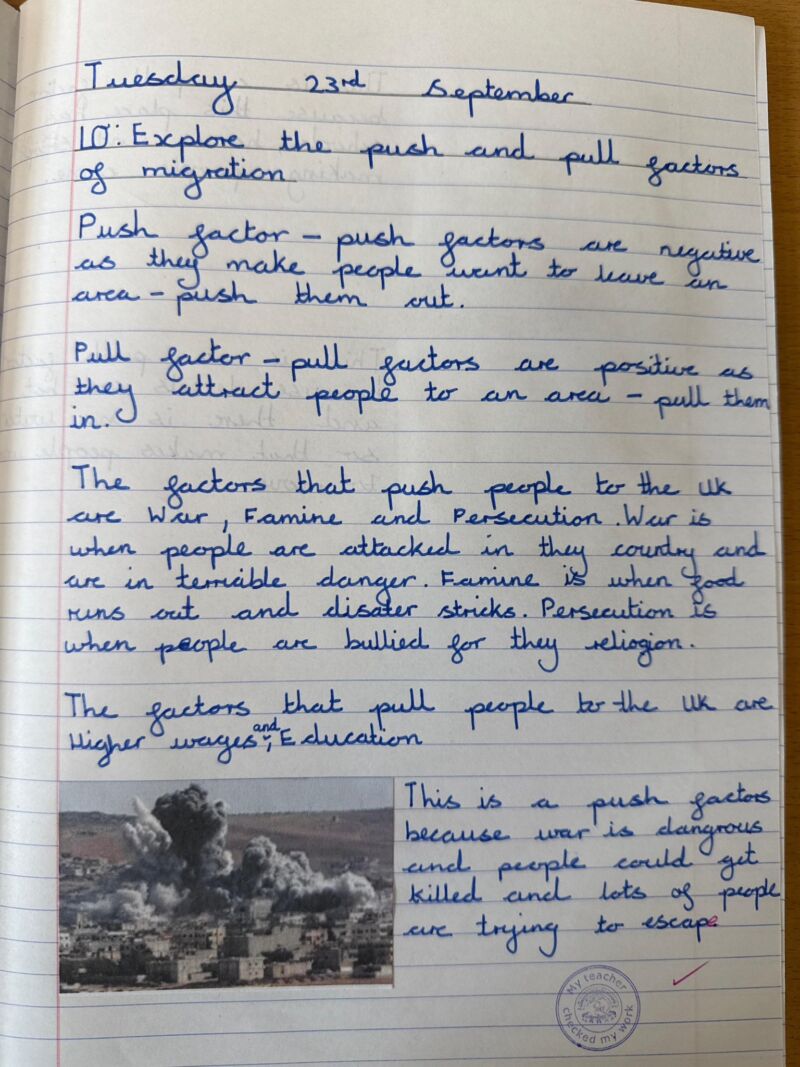 Tuesday 23rd September
LO: Explore the push and pull factors
of migration
Push factor - push factors are negative
as they make people want to leave an
area - push them out.
Pull factor - pull factors are positive as
they attract people to an area - pull them
in.
The factors that push people to the UK
are War, Famine and Persecution. War is
when people are attacked in they country and
are in terriable danger. Famine is when food
runs out and disater stricks. Persecution is
when people are bullied for they reliogion.
The factors that pull people to the UK are
Higher wages, and Education
This is a push factors
because war is dangrous
and people could get
killed and lots of people
are trying to escape
My teacher
checked my work